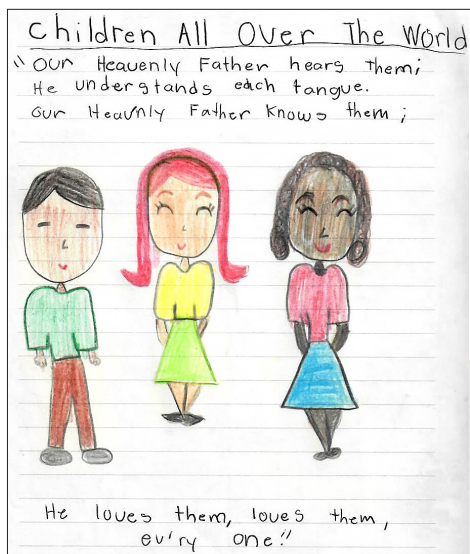 Children All Over The World
"Our Heavenly Father hears them;
He understands each tongue.
Our Heav'nly Father knows them;
He loves them, loves them,
ev'ry one!"